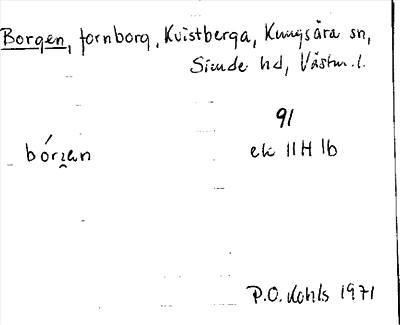 Borgen, fornborg, Kvistberga, Kungsåra sn,
Siende hd, Västm. l.
91
bórȷan ek 11H 1b
P.O. Kohls 1971